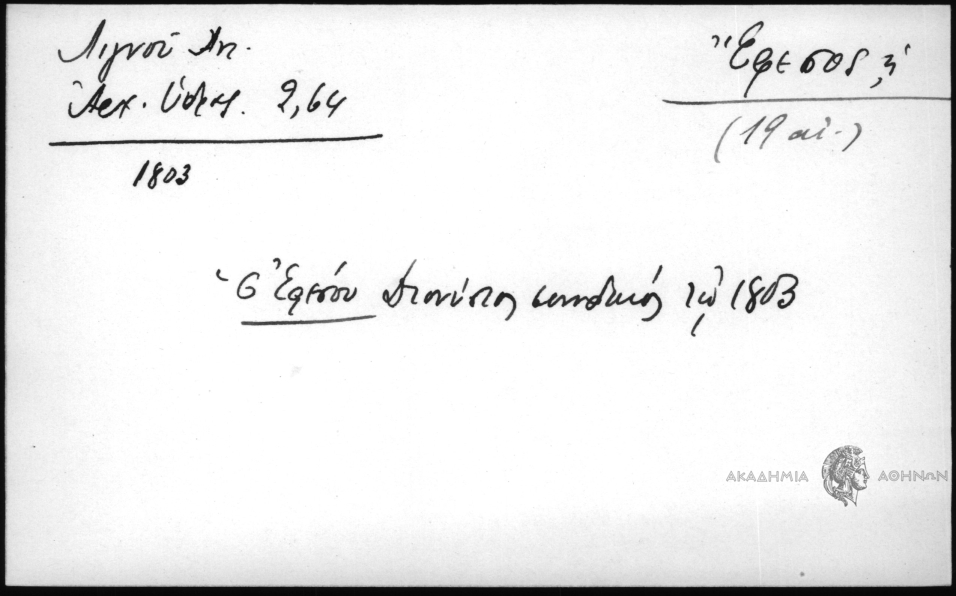 Λιγνοῦ Ἀν.
Ἀρχ. Ὕδρας. 2,64
1803
Ἔφεσος, ἡ
(19 αἰ.)
Ὁ Ἐφέσου Διονύσιος συνοδικός τῷ 1803
ΑΚΑΔΗΜΙΑ ΑΘΗΝΩΝ